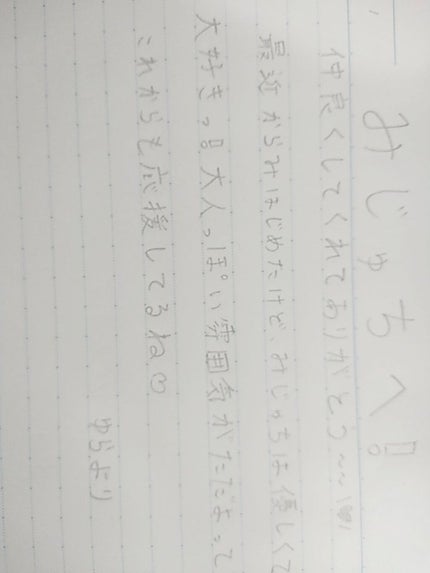 みじゅちへ!
仲良くしてくれてありがとう〜〜!!!
最近からみはじめたけど、みじゅちは優しくて
大好きっ!!大人っぽい雰囲気がただよってて
これからも応援してるね♡
ゆらより